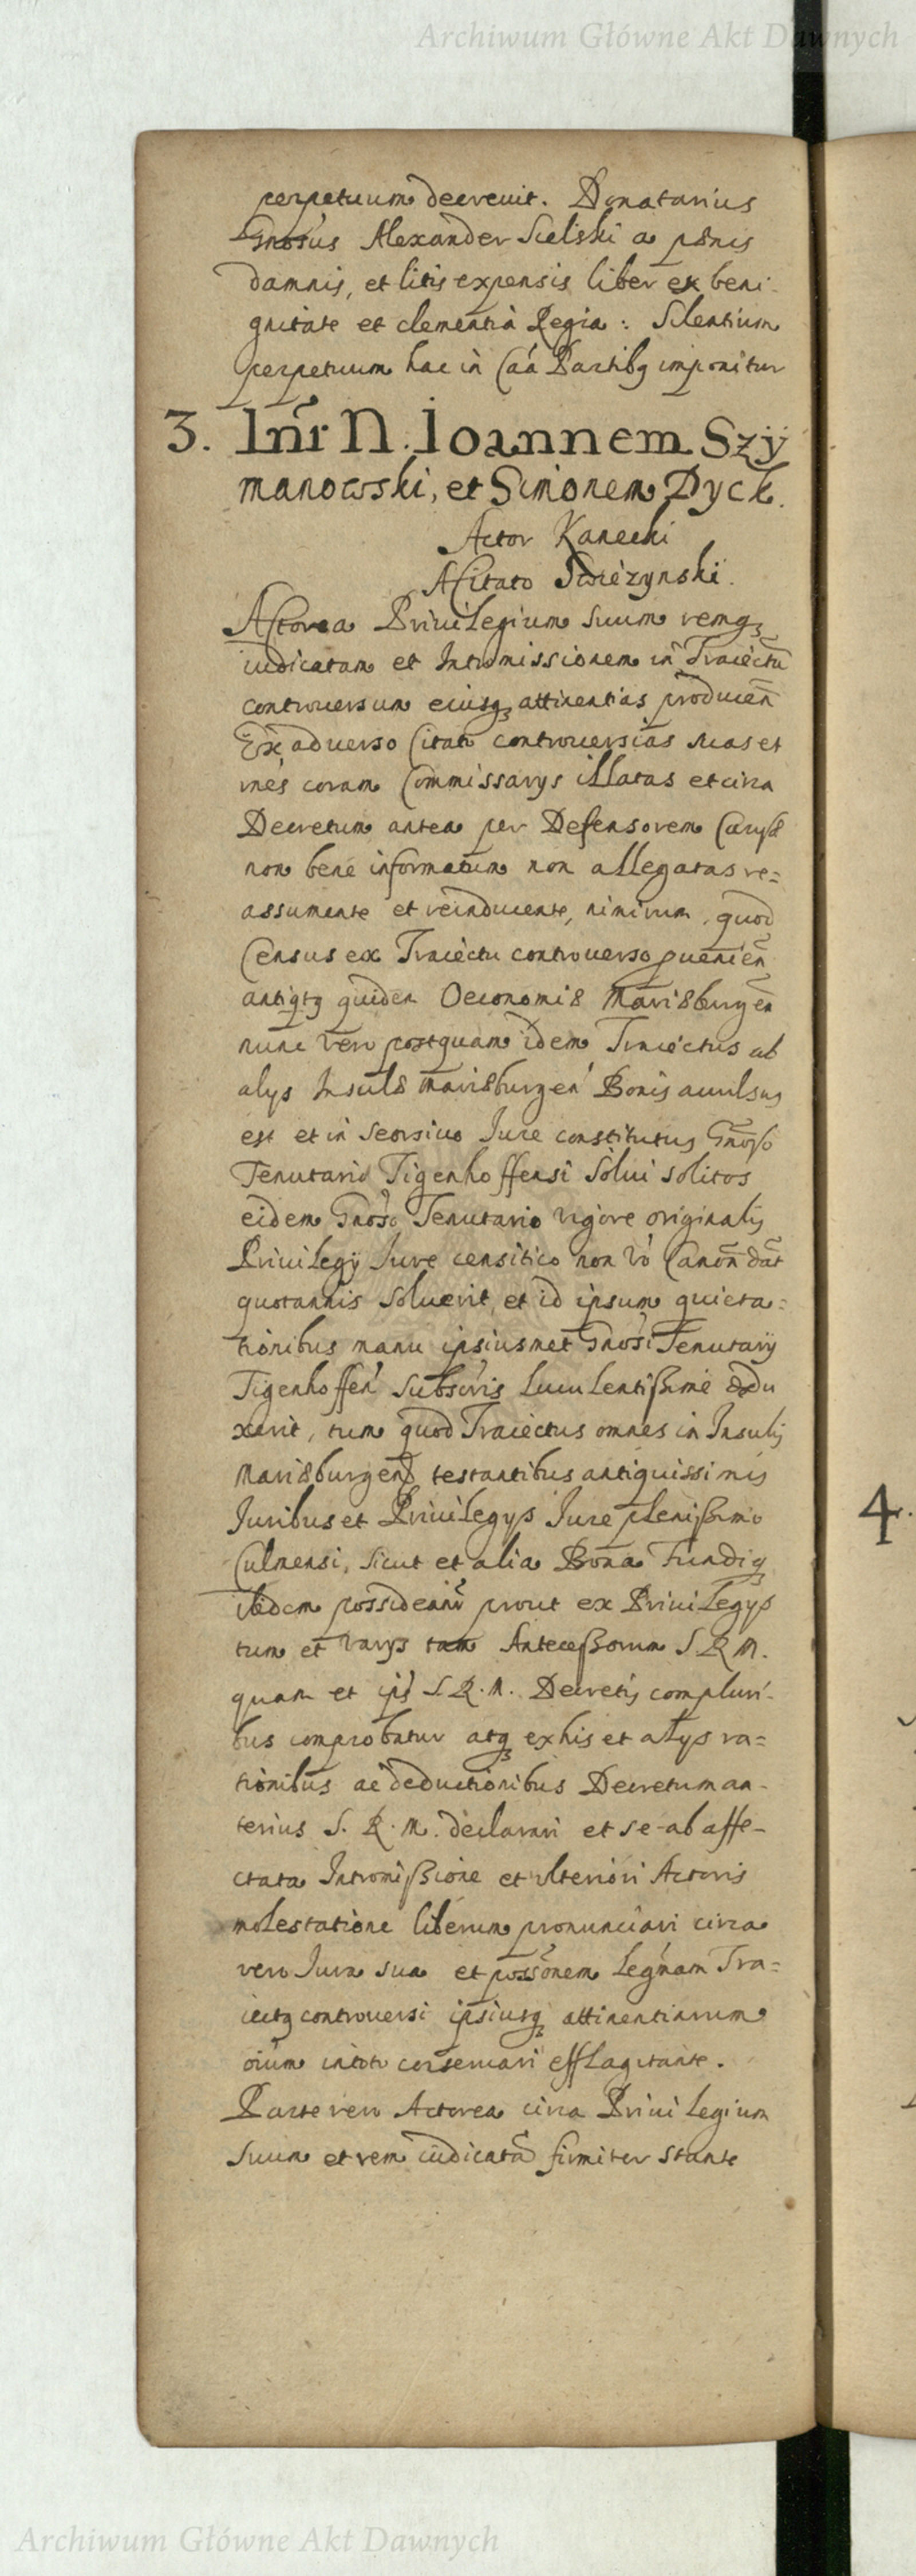 Archiwum Główne Akt Dawnych
perpetuum decrevit. Donatarius
Gnosus Alexander Sielski a pænis
damnis, et litis expensis liber ex beni-
gnitate et clementia Regia: Silentium
perpetuum hac in Caá Partibq imponitur
3. Inr̃ N. Joannem Szy
manowski, et Simonem Dyck.
Actor Kanecki
A Citato Swiezynski.
Actorea Privilegium suum remq
iudicatam et Intromissionem in Traiectũ
controversum eiusq attinentias producen̄
Ex adverso Citati controversias suas et
coram Commissarys illatas et circa
Decretum antea per Defensorem
non bene informatum non allegatas re=
assumente et reinducente, nimirum, quod
Census ex Traiectu controverso pvenien̄
antiqtq quidem Oeconomiæ Mariæburgen̄
nunc vero postquam idem Traiectus ab
alys Insulæ Mariæburgen Bonis avulsus
est et in seorsivo Jure constitutus Gnoso
Tenutario Tigenhoffensi solui solitos
eidem Gnoso Tenutario vigore originalis
Privilegÿ Jure censitico non vo Canon̄ dat
quotannis soluerit, et id ipsum quieta=
tionibus manu ipsiusmet Gnosi Tenutarÿ
Tigenhoffen subscris luculentissime dedu
xerit, tum quod Traiectus omnes in Insulis
Mariæburgen testantibus antiquissimis
Juribus et Privilegys Jure plenissimo
Culmensi, sicut et alia Bona Fundiq
ibidem possideant prout ex Privilegys
tum et varys tam Antecessorum S R M.
quam et ips S. R. M. Decretis compluri-
bus comprobatur atq ex his et alys ra=
tionibus ac deductionibus Decretum an-
terius S. R. M. declarari et se ab affe-
ctata Intromissione et ulteriori Actoris
molestatione liberum pronunciari circa
vero Jura sua et possonem legnam Tra=
iectq controversi ipsiusq attinentiarum
oium in toto conservari efflagitante.
Parte vero Actorea circa Privilegium
suum et rem iudicatã firmiter stante
4.
Archiwum Główne Akt Dawnych